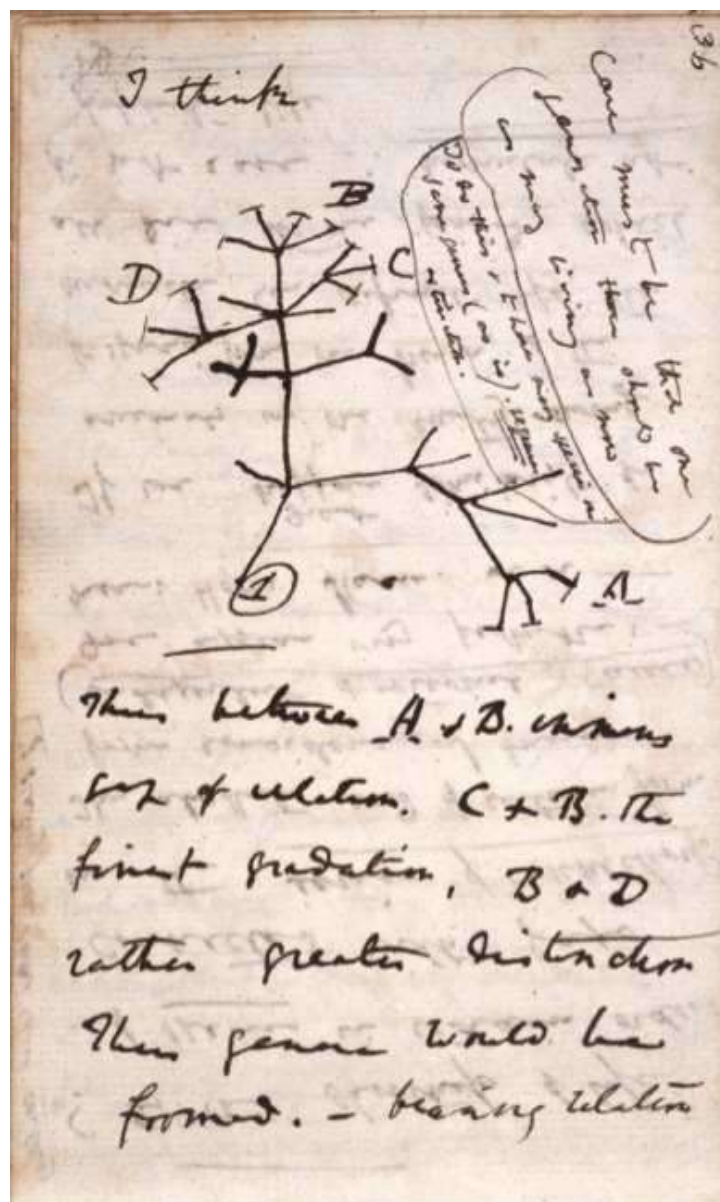 36
I think
Case must be that one
generation then should be
as many living as now
To do this & to have many species in
same genus (as is) requires
extinction.
B
D
C
A
1
Thus between A & B. immens
gap of relation. C & B. The
finest gradation, B & D
rather greater distinction
Thus genera would be
formed. — bearing relation